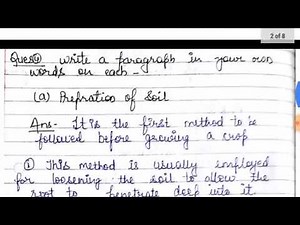 2 of 8
Ques④ write a paragraph in your own
words on each -
(a) Prepration of Soil
Ans- It is the first method to be
followed before growing a crop
① This method is usually employed
for loosening the soil to allow the
root to penetrate deep into it